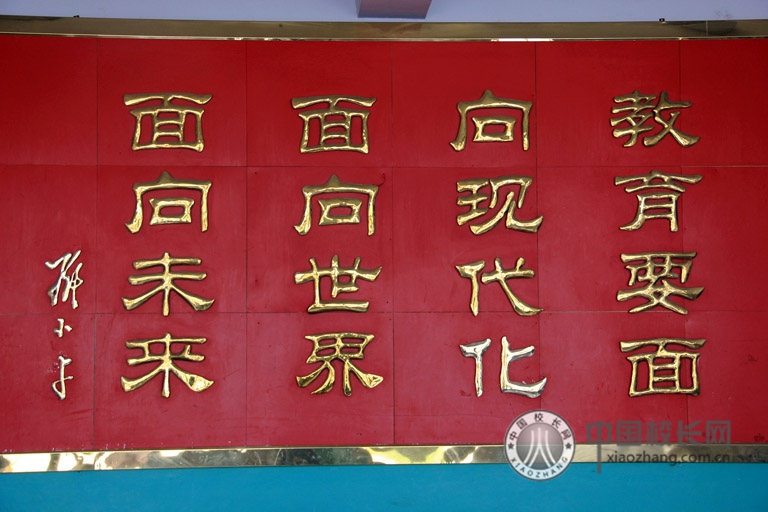 教育要面
向现代化
面向世界
面向未来
邓小平
中国校长网
xiaozhang.com.cn
中国校长网